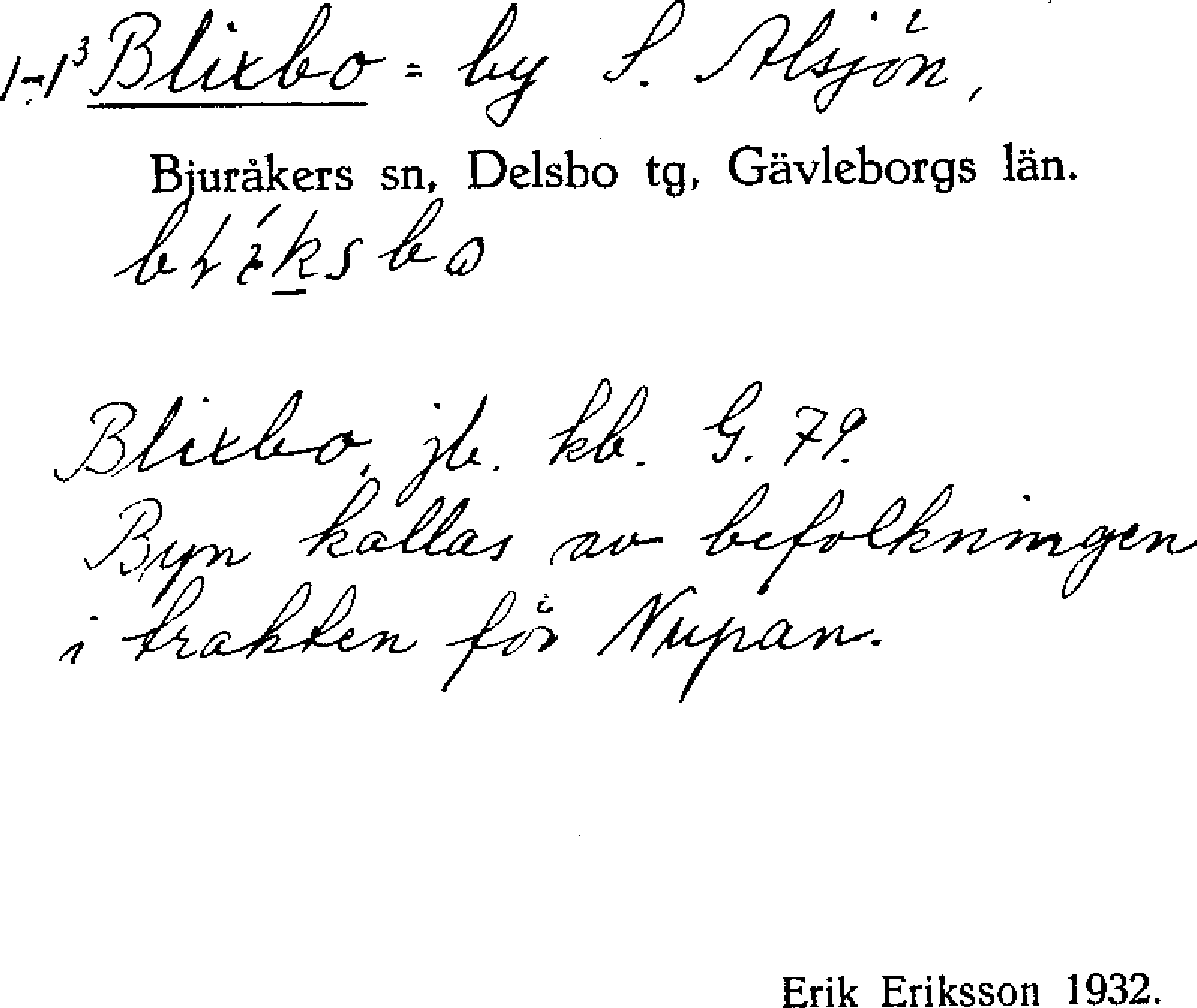 1-1³ Blixbo = by S. Alsjön,
Bjuråkers sn, Delsbo tg, Gävleborgs län.
blíksbo
Blixbo, jb. kb. G. 79.
Byn kallas av befolkningen
i trakten för Nupan.
Erik Eriksson 1932.